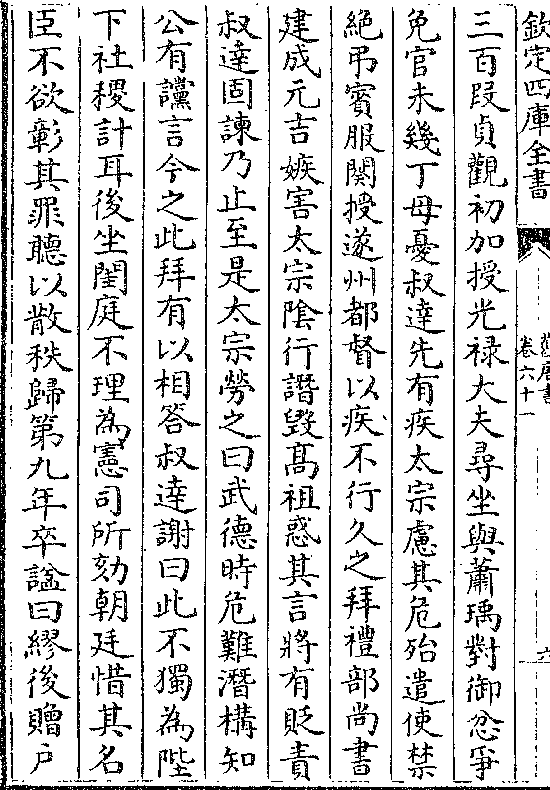 欽定四庫全書
舊唐書
卷六十一
六
三百段貞觀初加授光禄大夫尋坐與蕭瑀對御忿爭
免官未幾丁母憂叔達先有疾太宗慮其危殆遣使禁
絶弔賓服闋授遂州都督以疾不行久之拜禮部尚書
建成元吉嫉害太宗隂行譖毁髙祖惑其言將有貶責
叔達固諫乃止至是太宗勞之曰武德時危難潛構知
公有讜言今之此拜有以相答叔達謝曰此不獨為陛
下社稷計耳後坐閨庭不理為憲司所劾朝廷惜其名
臣不欲彰其罪聽以散秩歸第九年卒諡曰繆後贈户